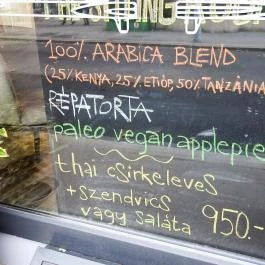 100% ARABICA BLEND
(25% KENYA, 25% ETIÓP, 50% TANZÁNIA
RÉPATORTA
paleo vegan applepie
thai csirkeleves
+ szendvics
vagy saláta 950.-